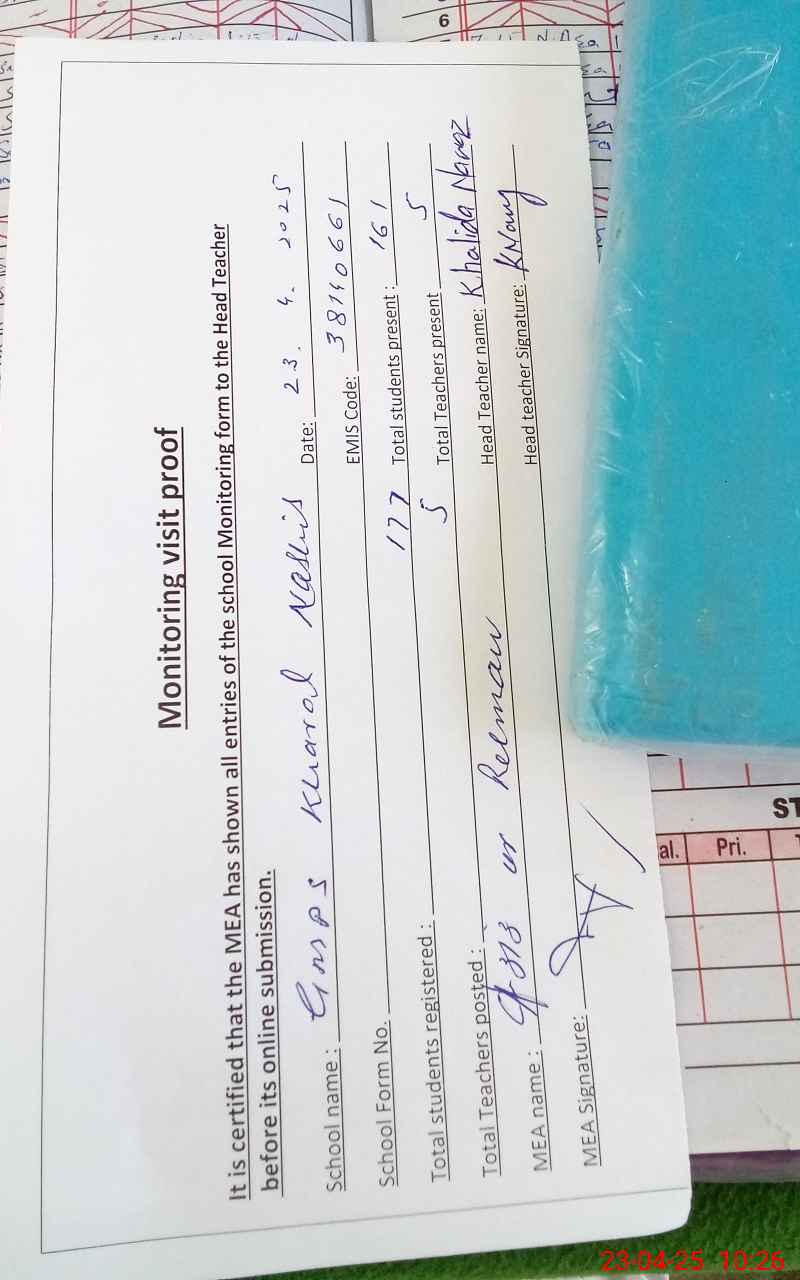 Monitoring visit proof
It is certified that the MEA has shown all entries of the school Monitoring form to the Head Teacher
before its online submission.
School name : GMPS Kharal Nashib Date: 23. 4. 2025
School Form No. EMIS Code: 38140661
Total students registered : 177 Total students present : 161
Total Teachers posted : 5 Total Teachers present 5
MEA name : ur Rehman Head Teacher name: Khalida Nawaz
MEA Signature: Head teacher Signature: KNawz
6
ST
al. Pri.
23-04-25 10:26